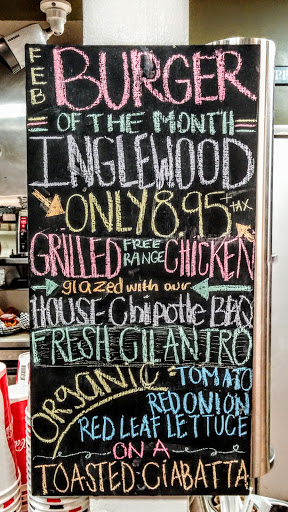 FEB
BURGER
OF THE MONTH
INGLEWOOD
ONLY 8.95 +TAX
GRILLED FREE RANGE CHICKEN
glazed with our
HOUSE Chipotle BBQ
FRESH CILANTRO
ORGANIC - TOMATO
RED ONION
RED LEAF LETTUCE
ON A
TOASTED CIABATTA